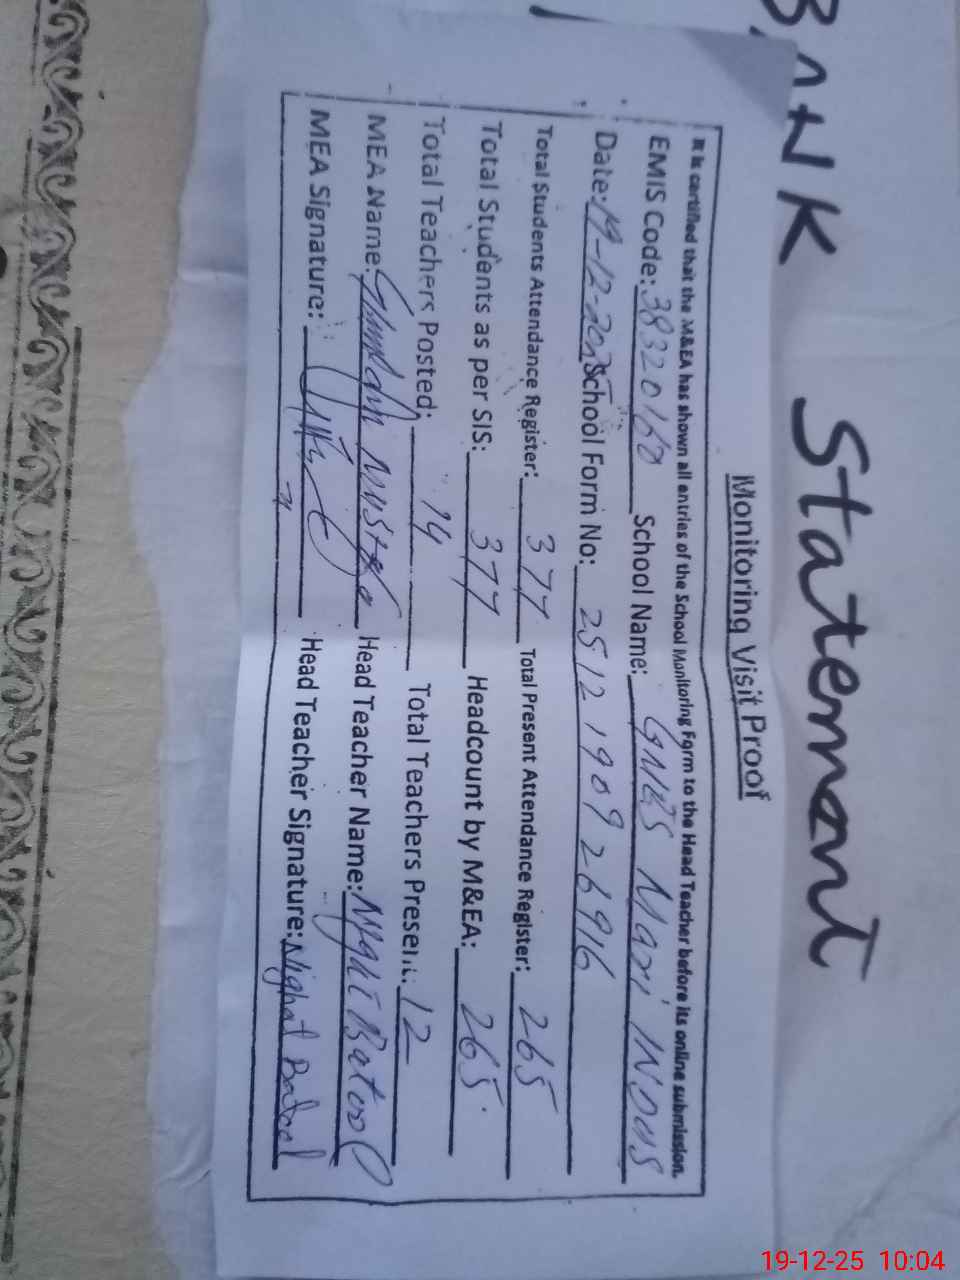 BANK Statement
Monitoring Visit Proof
It is certified that the M&EA has shown all entries of the School Monitoring Form to the Head Teacher before its online submission.
EMIS Code: 38320160 School Name: GNES Mari INDUS
Date: 19-12-2025 School Form No: 2512190926916
Total Students Attendance Register: 377 Total Present Attendance Register: 265
Total Students as per SIS: 377 Headcount by M&EA: 265
Total Teachers Posted: 14 Total Teachers Present: 12
MEA Name: Ghulam Mustafa Head Teacher Name: Nighat Batool
MEA Signature: Head Teacher Signature: Nighat Batool
19-12-25 10:04